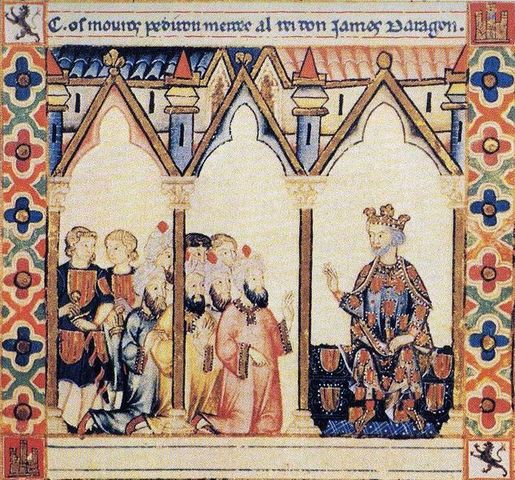 C. os mouros pediron mercee al rei don James daragon.